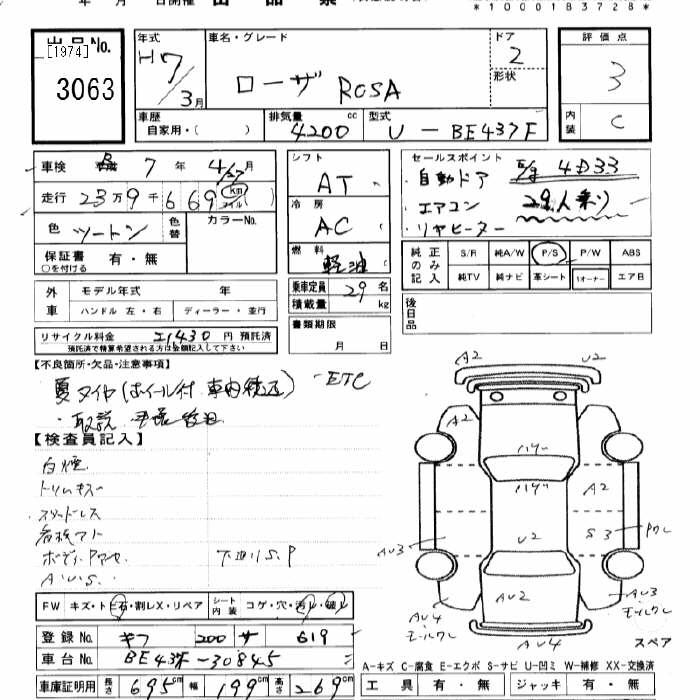 *1000183728*
出品No.
[1974]
3063
年式
H7/3月
車名・グレード
ローザ ROSA
ドア
2
形状
評価点
3
内装
C
車歴
自家用・( )
排気量 cc
4200
型式
U-BE437F
車検 7年 4/27月
走行 23万9千669 km マイル
色 ツートン
色替
カラーNo.
保証書 有・無
○を付ける
シフト
AT
冷房
AC
燃料
軽油
乗車定員 29名
積載量 kg
書類期限
月 日
セールスポイント
E/g 4D33
・自動ドア
・エアコン 29人乗り
・リヤヒーター
純正のみ記入
S/R 純A/W P/S P/W ABS
純TV 純ナビ 革シート 1オーナー エアB
後日品
外車
モデル年式 年
ハンドル 左・右 ディーラー・並行
リサイクル料金 21,430 円 預託済
預託済で精算希望される方は金額記入して下さい
【不良箇所・欠品・注意事項】
夏タイヤ(ホイール付 車内積込) -ETC
・取説
【検査員記入】
白煙
トリムキズ
スタッドレス
下廻りS.P
A2
U2
A2
A2
U2
S3
AU3
AU2
AU3
AU4
AU4
スペア
FW キズ・トビ石・割レX・リペア
シート内装 コゲ・穴・汚レ・破レ
登録No. 200 サ 619
車台No. -30845
車庫証明用 長さ 695cm 幅 199cm 高さ 269cm
A-キズ C-腐食 E-エクボ S-サビ U-凹ミ W-補修 XX-交換済
工具 有・無 ジャッキ 有・無